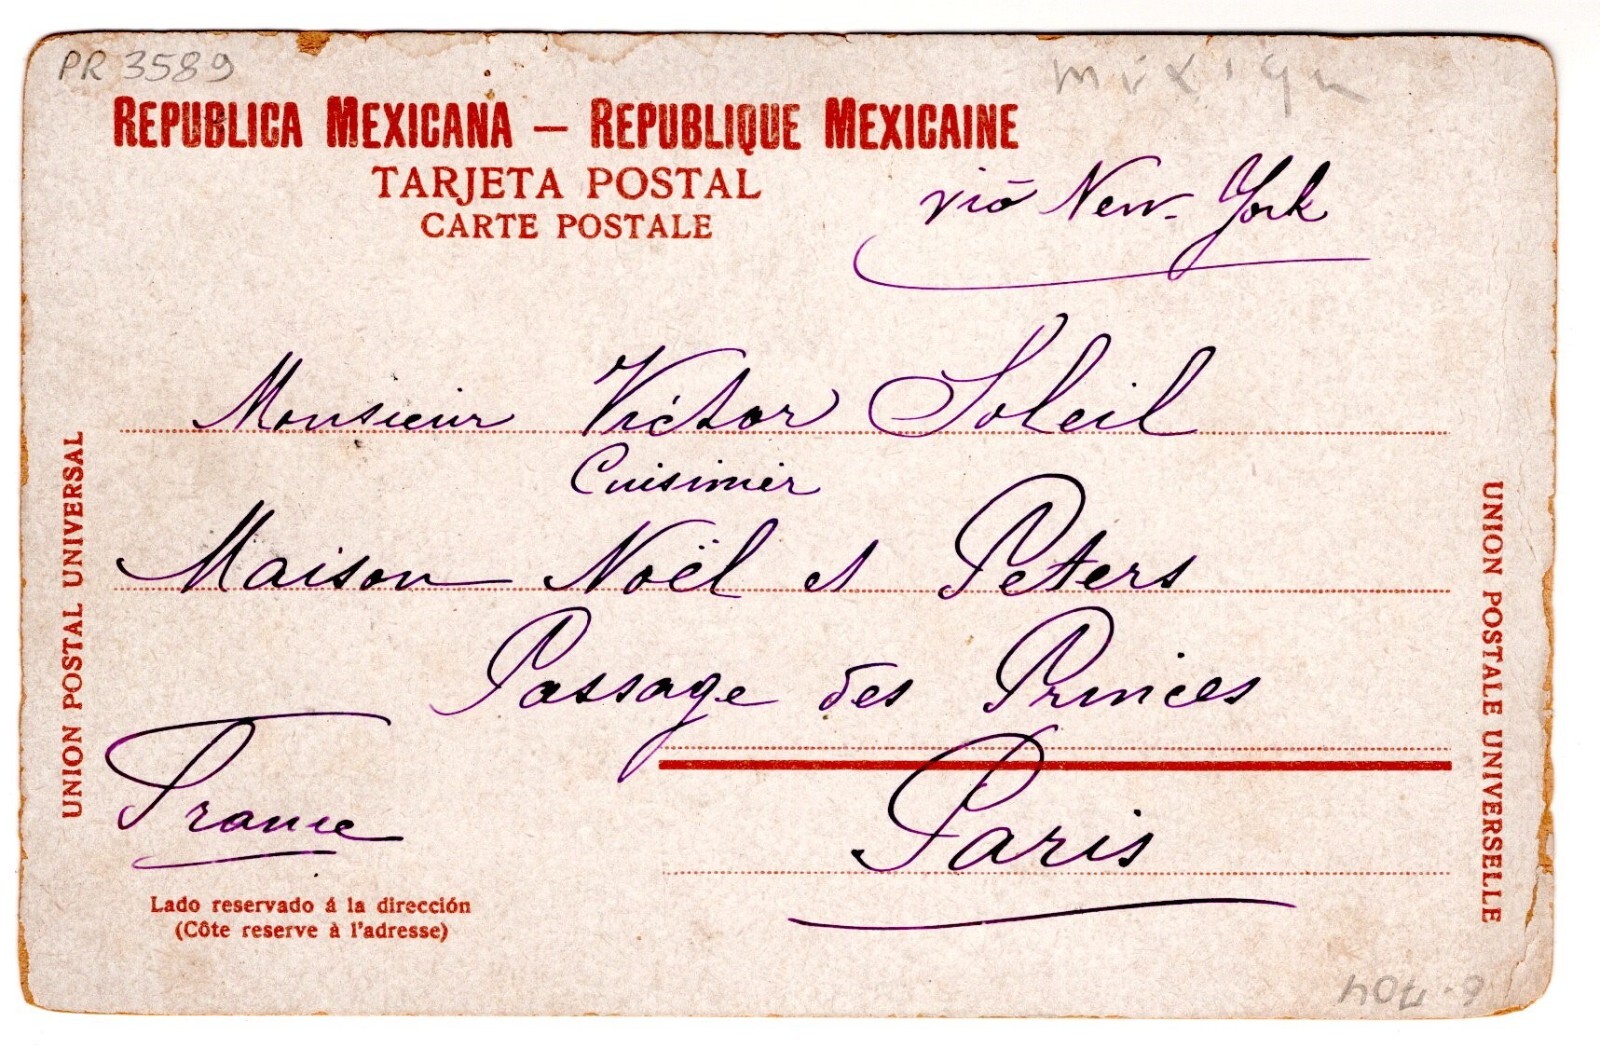 PR 3589
REPUBLICA MEXICANA — REPUBLIQUE MEXICAINE
TARJETA POSTAL
CARTE POSTALE
viâ New-York
Monsieur Victor Soleil
Cuisinier
Maison Noël et Peters
Passage des Princes
Paris
France
Lado reservado á la dirección
(Côte reserve à l'adresse)
UNION POSTAL UNIVERSAL
UNION POSTALE UNIVERSELLE